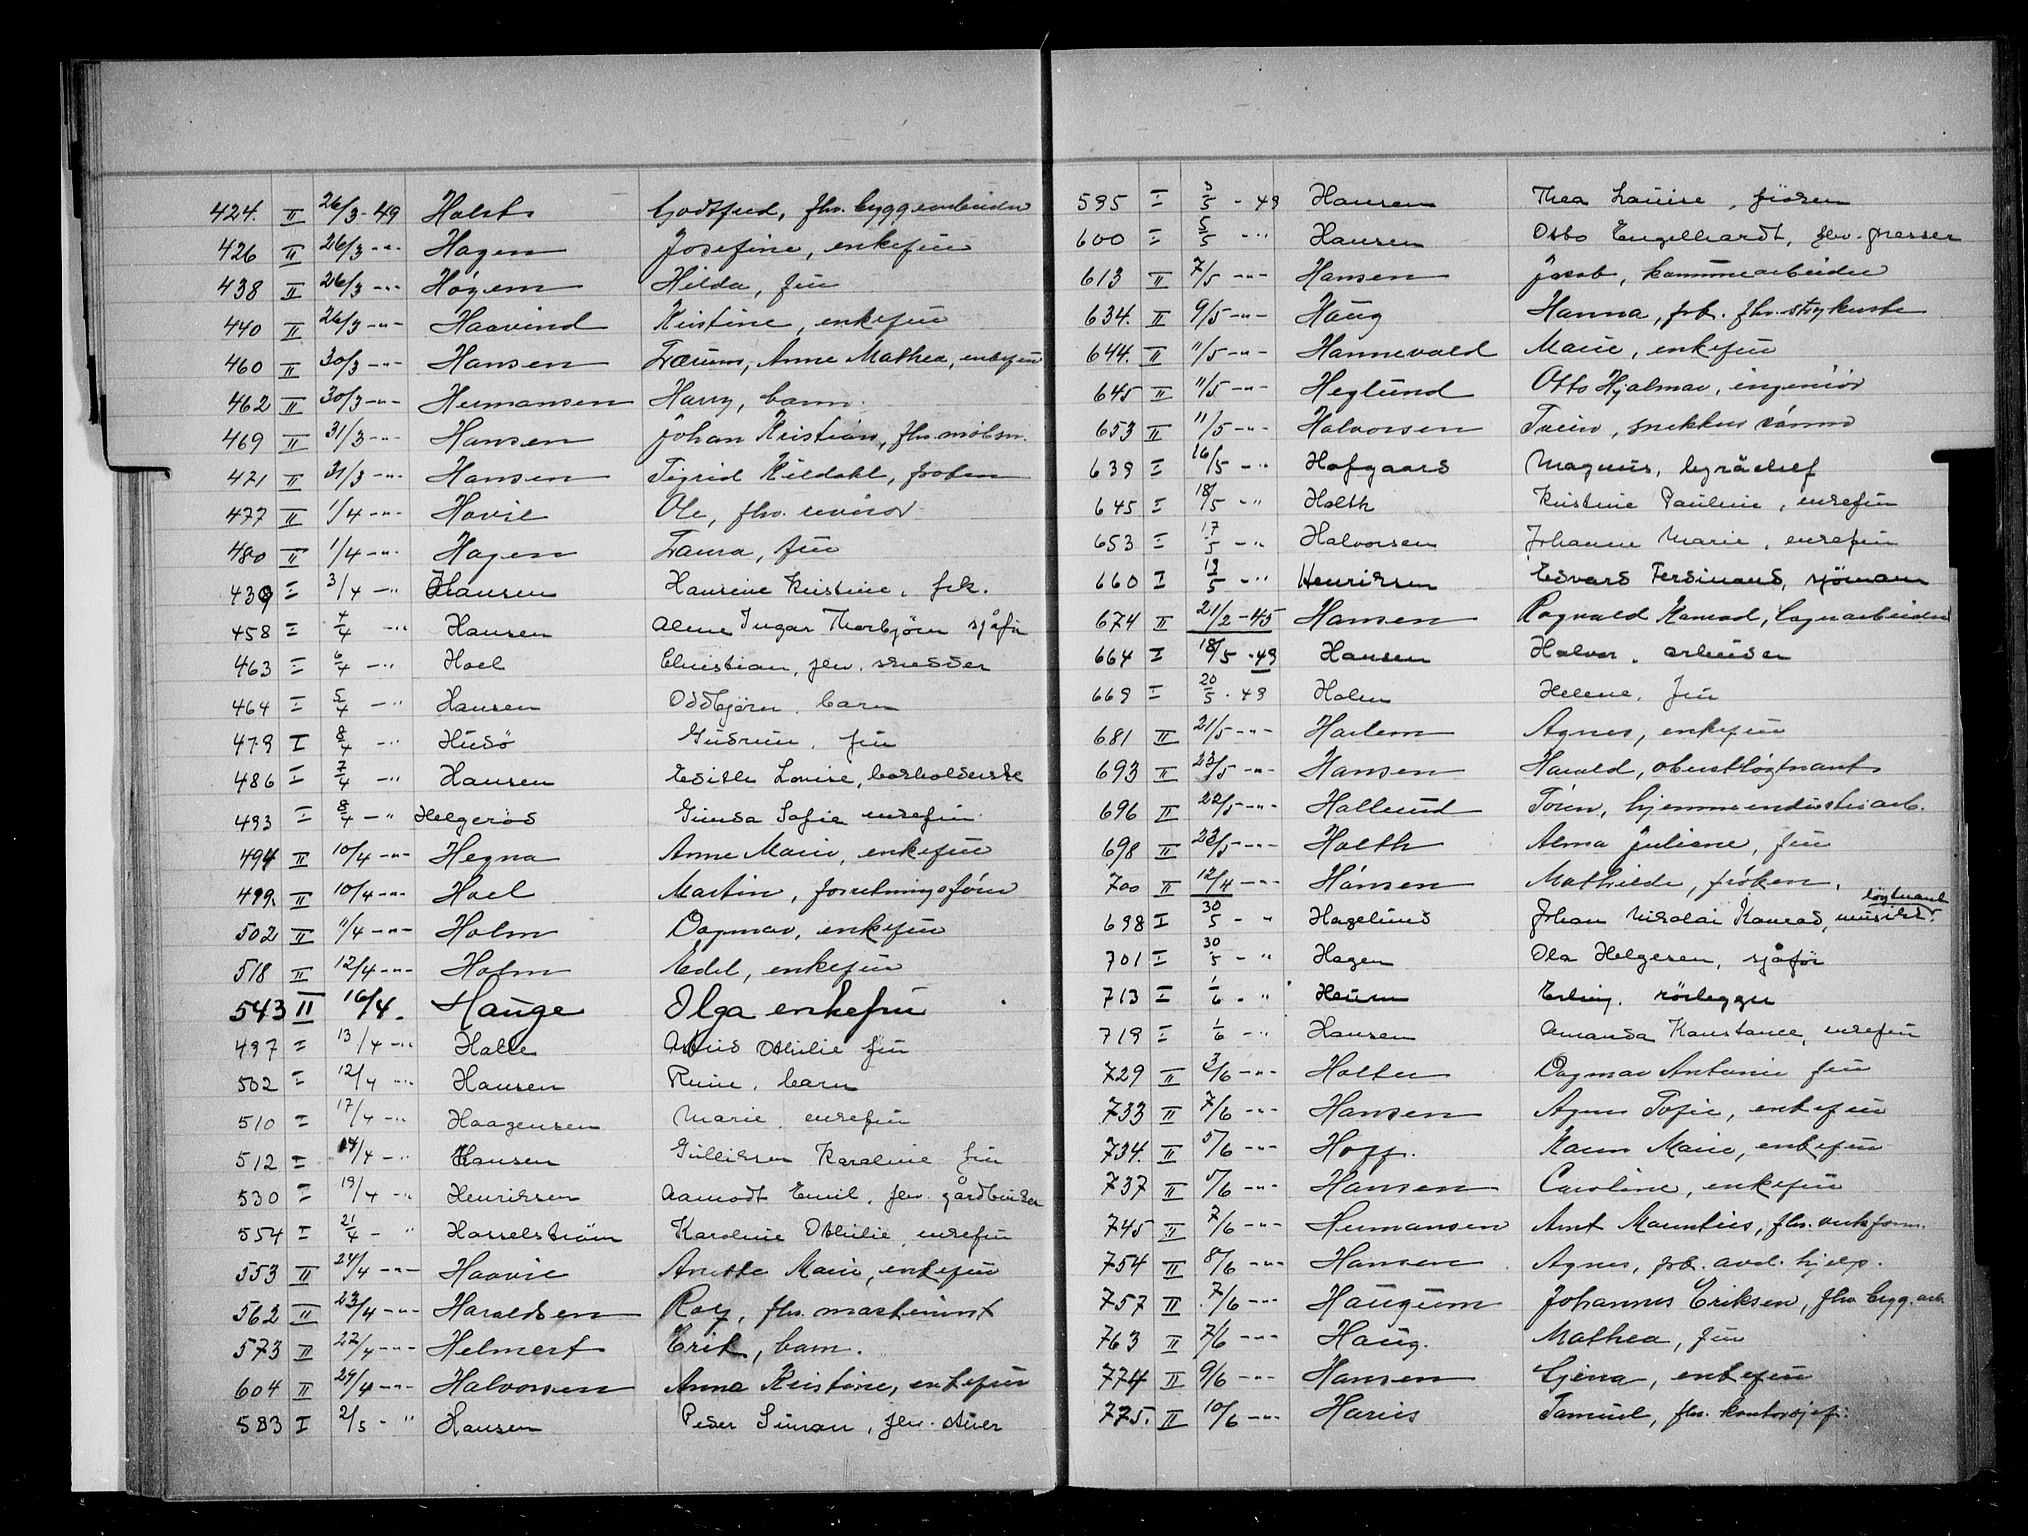 424. II 26/3-49 Holst Godtfred, fhv. byggearbeider
426 II 26/3 -"- Hagen Josefine, enkefru
438 II 26/3 -"- Høgem Hilda, fru
440 II 26/3 -"- Haavind Kristine, enkefru
460 II 30/3 -"- Hansen Lærum, Anne Mathea, enkefru
462 II 30/3 -"- Hermansen Harry, barn.
469 II 31/3 -"- Hansen Johan Kristian, fhv. møbsn.
471 II 31/3 -"- Hansen Sigrid Kildahl, frøken
477 II 1/4 -"- Hovie Ole, fhv. revisor
480 II 1/4 -"- Hagen Laura, fru
439 I 3/4 -"- Hansen Hansine Kristine, frk.
458 I 4/4 -"- Hansen Arne Ingar Thorbjørn sjåfør
463 I 6/4 -"- Hoel Christian, fhv. skredder
464 I 5/4 -"- Hansen Oddbjørn, barn
479 I 8/4 -"- Husø Gudrun, fru
486 I 7/4 -"- Hansen Edith Lovise, bokholderske
493 I 8/4 -" Helgerød Gunda Sofie enkefru
494 II 10/4 -"- Hegna Anne Marie, enkefru
499. II 10/4 -"- Hoel Martin, forretningsfører
502 II 11/4 -"- Holm Dagmar, enkefru
518 II 12/4 -"- Holm Edel, enkefru
543 II 16/4. Hauge Olga enkefru
497 I 13/4 -"- Halle Othilie fru
502 I 12/4 -"- Hansen Rune, barn
510 I 17/4 -"- Haagensen Marie, enkefru
512 I 14/4 -"- Hansen Gulliksen Karoline fru
530 I 19/4 -"- Henriksen Aamodt Emil, fhv. gårdbruker
554 I 21/4 - " Hasselstrøm Karoline Othilie, enkefru
553 II 24/4 -"- Haavie Anette Marie, enkefru
562 II 23/4 -"- Haraldsen Roy, fhv. maskinist
573 II 27/4 -"- Helmert Erik, barn.
604 II 29/4 -"- Halvorsen Anna Kristine, enkefru
583 I 2/5 - " Hansen Peder Simon, fhv.
595 I 3/5 - 49 Hansen Thea Louise, frøken
600 I 5/5 -"- Hansen Otto Engelhardt, fhv. presser
613 II 7/5 -"- Hansen Jacob, kommunearbeider
634. II 9/5 -"- Haug Hanna, frk. fhv. strykerske
644. II 11/5 -"- Hannevold Marie, enkefru
645 II 11/5 -"- Heglund Otto Hjalmar, ingeniør
653 II 11/5 -"- Halvorsen snekker
639 I 16/5 -" Hofgaard Magnus, byråchef
645 I 18/5 -" Holth Kristine Pauline, enkefru
653 I 17/5 -" Halvorsen Johanne Marie, enkefru
660 I 19/5 -" Henriksen Edvard Ferdinand, sjömann
674 II 21/2 -45 Hansen Ragnvald Konrad, lagerarbeider
664 I 18/5 -49 Hansen Halvor, arbeider
669 I 20/5 - 49 Holm Helene, fru
681 II 21/5 -"- Harlem Agnes, enkefru
693 II 23/5 -"- Hansen Harald, oberstløytnant
696 II 22/5 -"- Hallerud hjemmeindustriarb.
698 II 23/5 -"- Holth Alma Juliane, fru
700 II 12/4 -"- Hansen Mathilde, frøken.
698 I 30/5 - " Hagelund Johan Nikolai Konrad, musikk. løytnant
701 I 30/5 - " Hagen Ola Helgesen, sjåfør
713 I 1/6 - " Heurn Erling, rörlegger
719 I 1/6 -" Hansen Amanda Konstance, enkefru
729 II 3/6 -"- Holter Dagmar Antonie fru
733 II 7/6 -"- Hansen Agnes Sofie, enkefru
734. II 5/6 -"- Hoff. Karen Marie, enkefru
737 II 5/6 -"- Hansen Caroline, enkefru
745 II 7/6 -"- Hermansen Arnt Mauritius, fhv. verksform.
754 II 8/6 -"- Hansen Agnes, frk. avd. hjelp.
757 II 7/6 -"- Haugum Johannes Eriksen, fhv. bygg.arb.
763 II 7/6 -"- Haug. Mathea, fru
774 II 9/6 -"- Hansen Gjerta, enkefru
775. II 10/6 -"- Harris Samuel, fhv. kontorsjef.